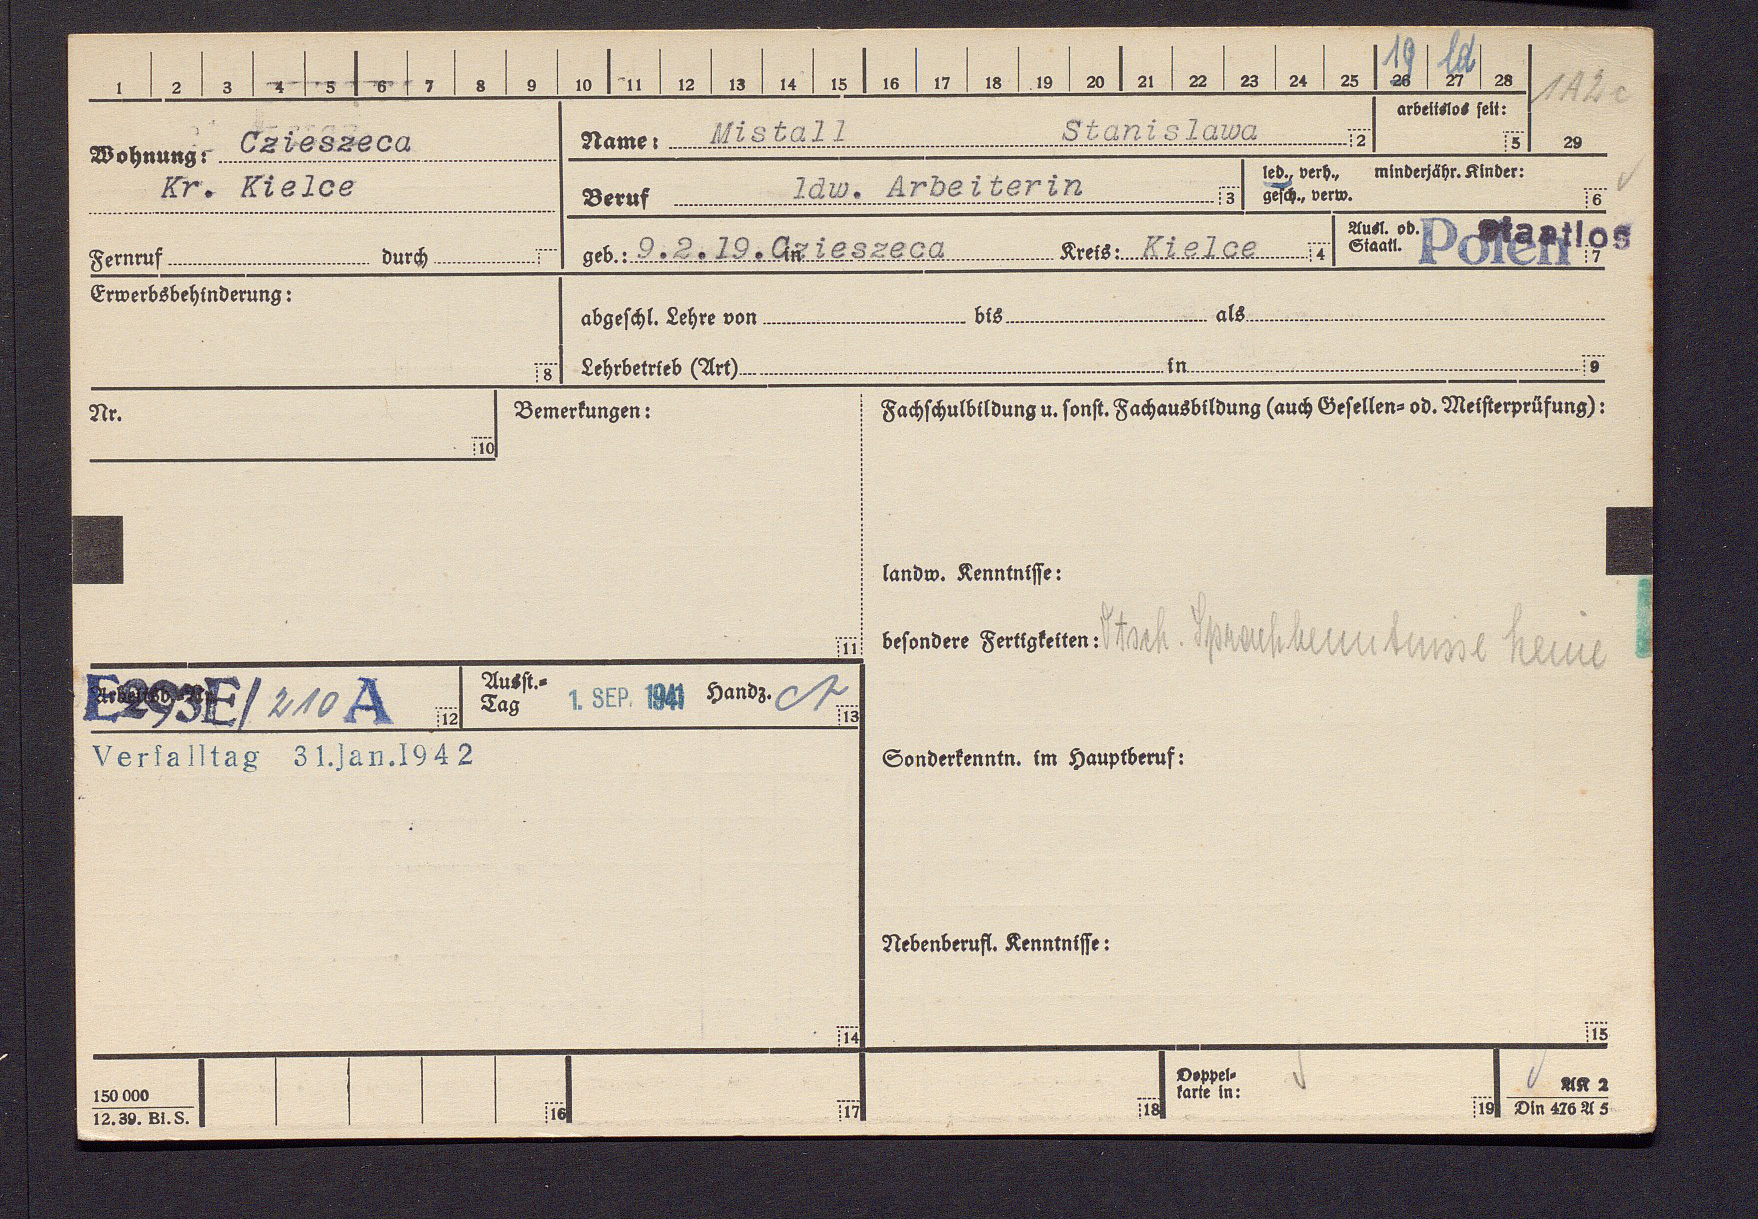 19 ld
1 2 3 4 5 6 7 8 9 10 11 12 13 14 15 16 17 18 19 20 21 22 23 24 25 26 27 28
1A2c
Wohnung: Czieszeca
Kr. Kielce
Name: Mistall Stanislawa 2
arbeitslos seit:
5
29
Beruf ldw. Arbeiterin 3
led., verh., minderjähr. Kinder:
gesch., verw. 6
Fernruf durch
geb.: 9.2.19. in Czieszeca Kreis: Kielce 4
Ausl. od.
Staatl. Polen Staatlos 7
Erwerbsbehinderung:
8
abgeschl. Lehre von bis als
Lehrbetrieb (Art) in 9
Nr.
10
Bemerkungen:
11
Fachschulbildung u. sonst. Fachausbildung (auch Gesellen- od. Meisterprüfung):
landw. Kenntnisse:
besondere Fertigkeiten: Dtsch. Sprachkenntnisse keine
Arbeitsb.-Nr. E293E/210 A 12
Ausst.-
Tag 1. SEP. 1941 Handz. 13
Verfalltag 31.Jan.1942
14
Sonderkenntn. im Hauptberuf:
Nebenberufl. Kenntnisse:
15
150 000
12. 39. Bi. S.
16
17
18
Doppel-
karte in:
19
AK 2
Din 476 A 5